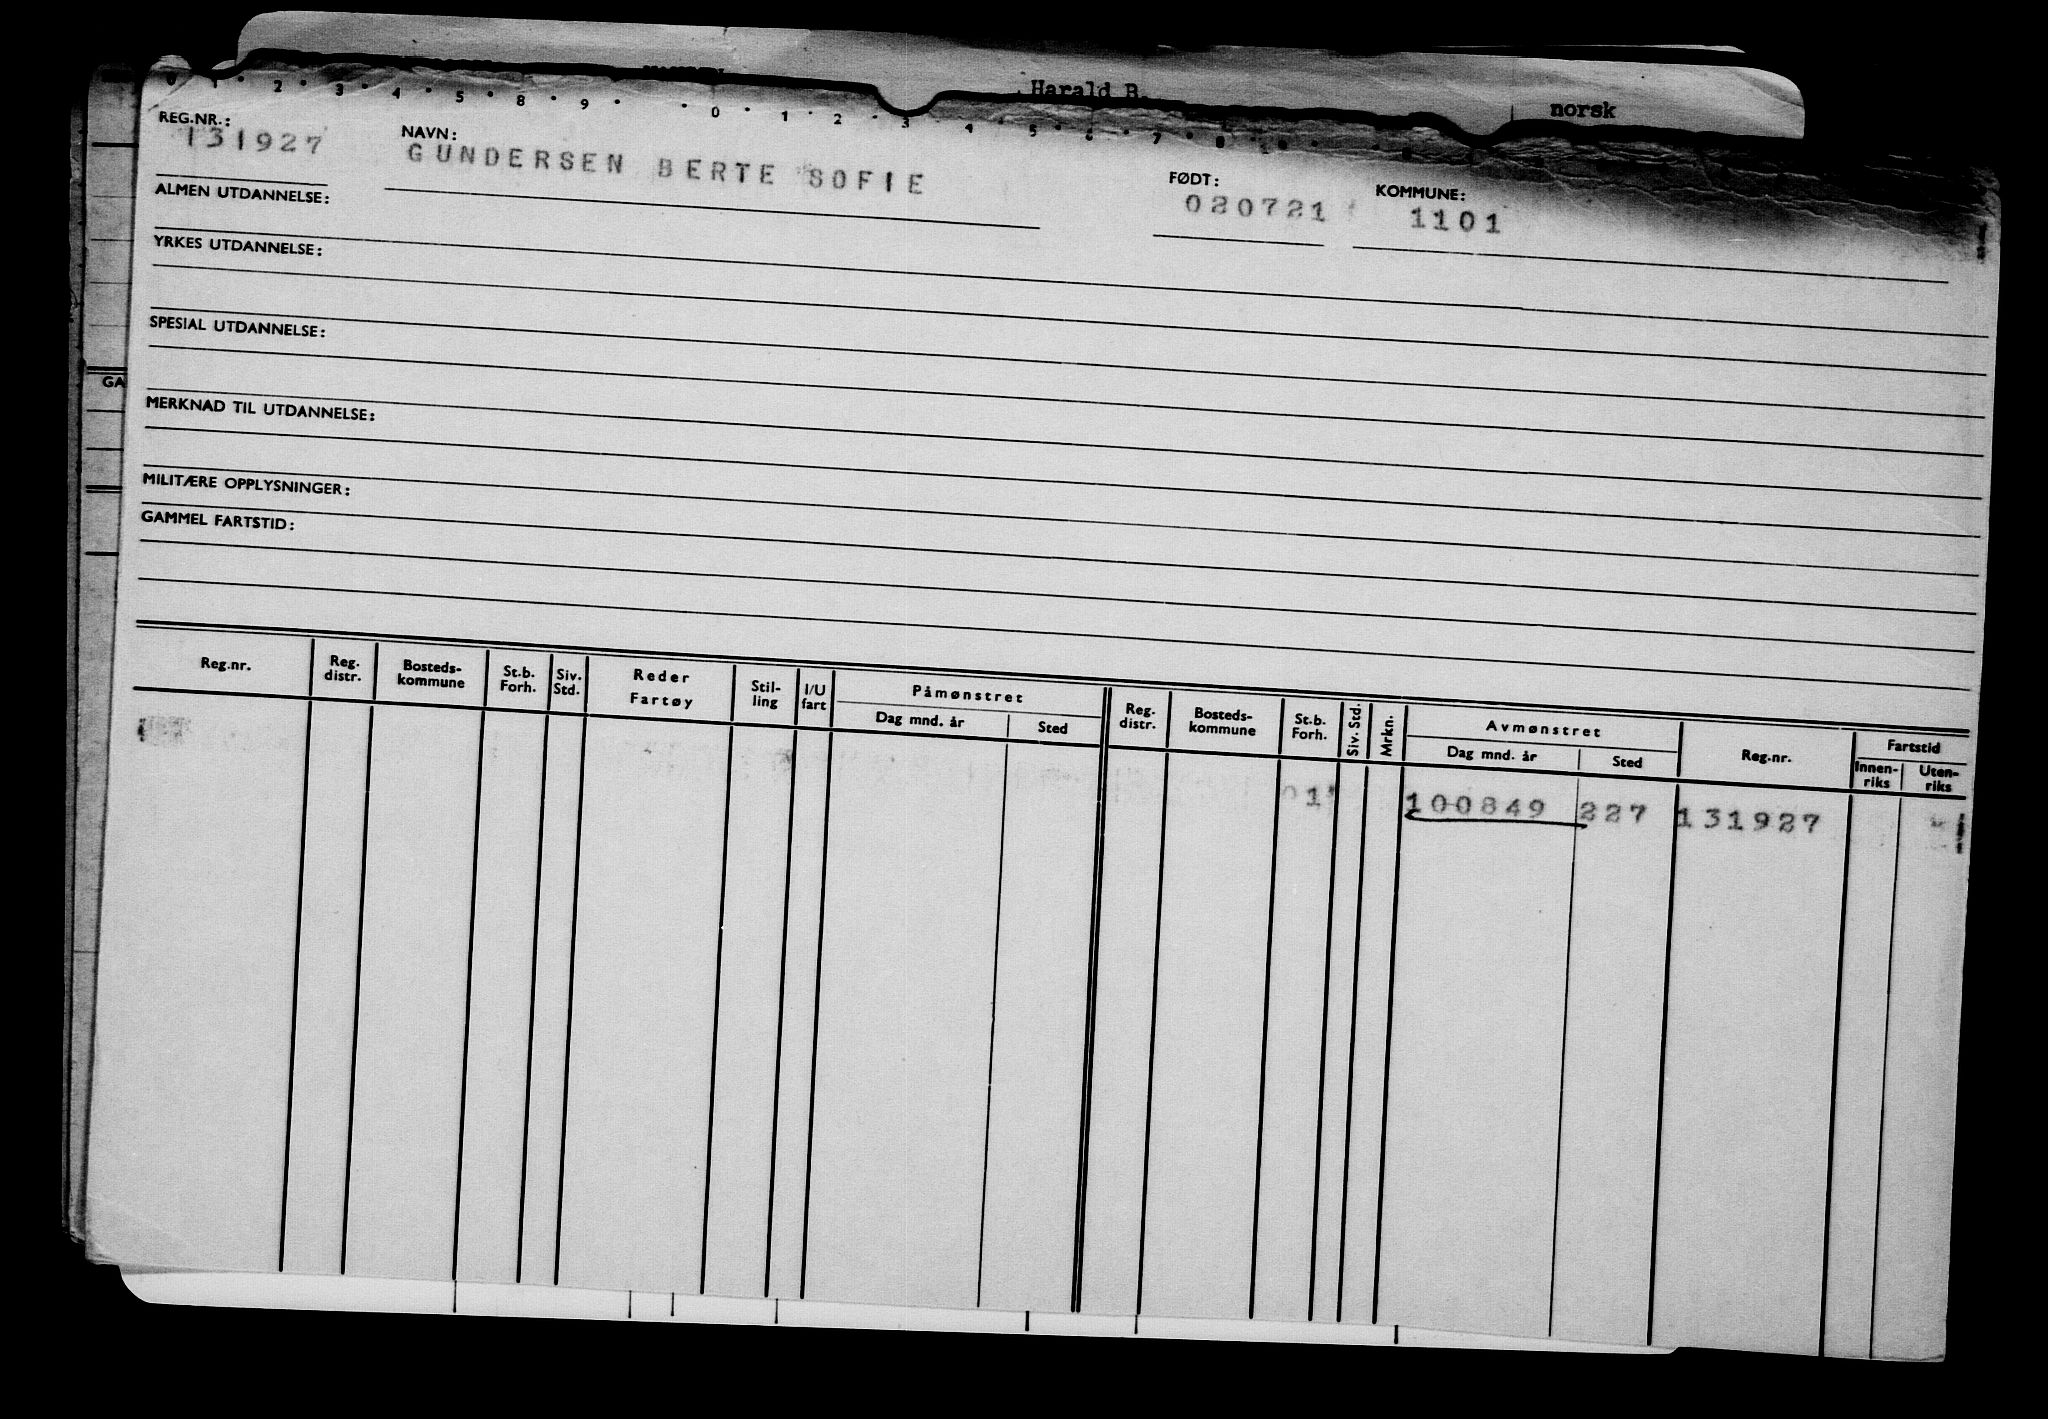 Harald B. norsk
0 1 2 3 4 5 8 9 0 1 2 3 4 5 6 7 8
REG.NR.: NAVN: FØDT: KOMMUNE:
131927 GUNDERSEN BERTE SOFIE 020721 1101
ALMEN UTDANNELSE:
YRKES UTDANNELSE:
SPESIAL UTDANNELSE:
GA
MERKNAD TIL UTDANNELSE:
MILITÆRE OPPLYSNINGER:
GAMMEL FARTSTID:
Reg.nr. Reg. distr. Bosteds-kommune St.b. Forh. Siv. Std. Reder Fartøy Stil-ling I/U fart Påmønstret Dag mnd. år Sted Reg. distr. Bosteds-kommune St.b. Forh. Siv. Std. Mrkn. Avmønstret Dag mnd. år Sted Reg.nr. Fartstid Innen-riks Uten-riks
01 100849 227 131927